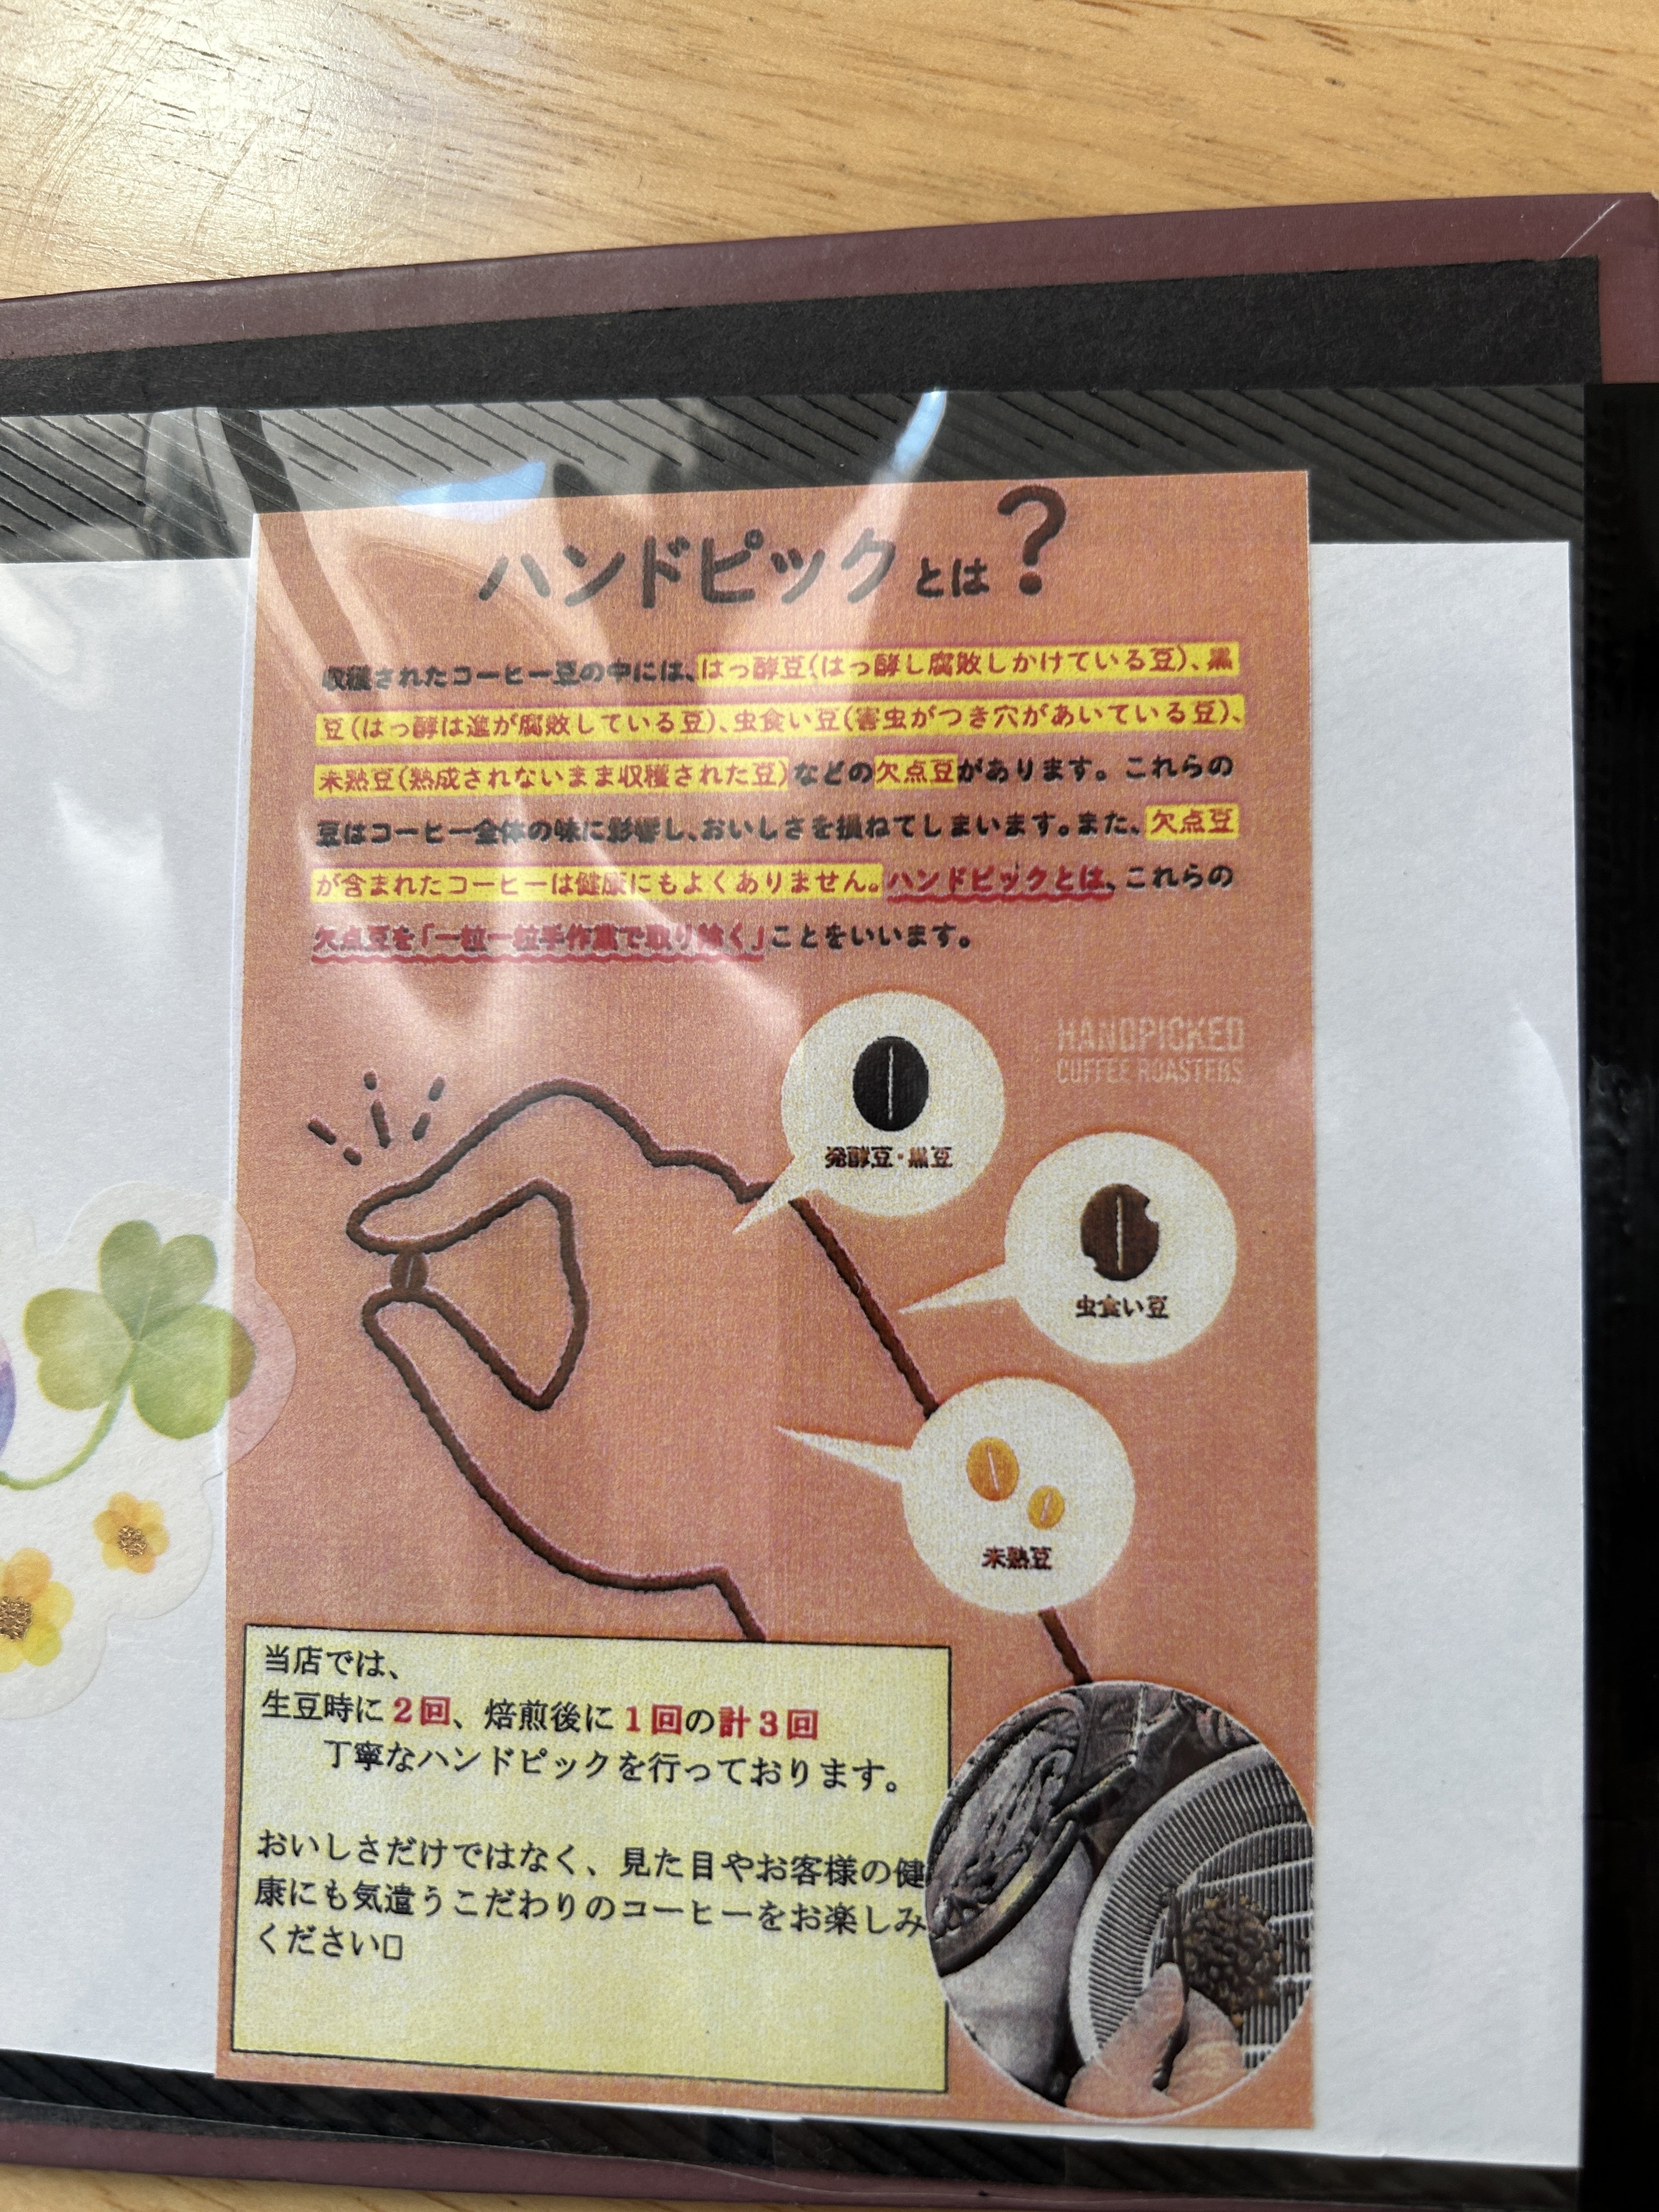 ハンドピックとは?
収穫されたコーヒー豆の中には、はっ酵豆(はっ酵し腐敗しかけている豆)、黒
豆(はっ酵は進が腐敗している豆)、虫食い豆(害虫がつき穴があいている豆)、
未熟豆(熟成されないまま収穫された豆)などの欠点豆があります。これらの
豆はコーヒー全体の味に影響し、おいしさを損ねてしまいます。また、欠点豆
が含まれたコーヒーは健康にもよくありません。ハンドピックとは、これらの
欠点豆を「一粒一粒手作業で取り除く」ことをいいます。
HANDPICKED
COFFEE ROASTERS
発酵豆・黒豆
虫食い豆
未熟豆
当店では、
生豆時に2回、焙煎後に1回の計3回
丁寧なハンドピックを行っております。
おいしさだけではなく、見た目やお客様の健
康にも気遣うこだわりのコーヒーをお楽しみ
ください□